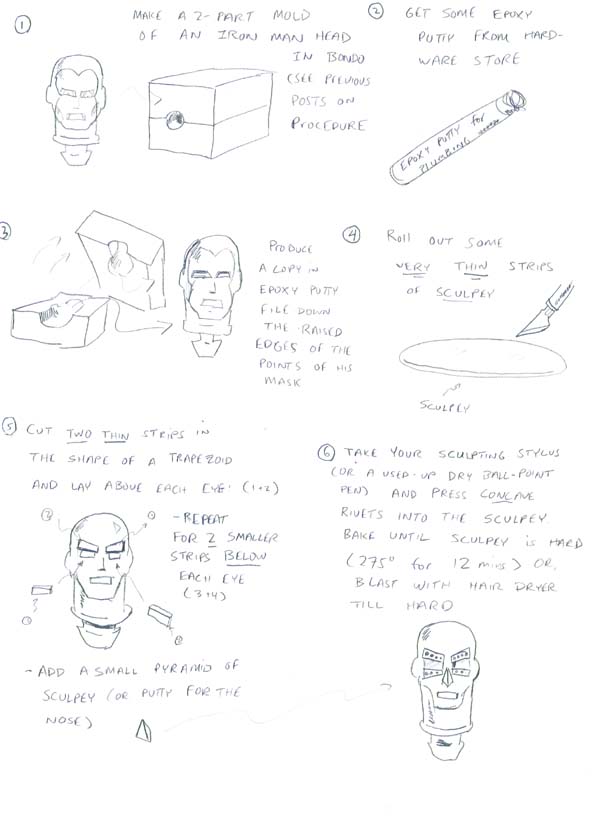 ①
MAKE A 2-PART MOLD
OF AN IRON MAN HEAD
IN BONDO
(SEE PREVIOUS
POSTS ON
PROCEDURE
②
GET SOME EPOXY
PUTTY FROM HARD-
WARE STORE
EPOXY PUTTY for
PLUMBING
③
PRODUCE
A COPY IN
EPOXY PUTTY
FILE DOWN
THE RAISED
EDGES OF THE
POINTS OF HIS
MASK
④
Roll OUT SOME
VERY THIN STRIPS
OF SCULPEY
SCULPEY
⑤ CUT TWO THIN STRIPS IN
THE SHAPE OF A TRAPEZOID
AND LAY ABOVE EACH EYE. (1+2)
- REPEAT
FOR 2 SMALLER
STRIPS BELOW
EACH EYE
(3+4)
- ADD A SMALL PYRAMID OF
SCULPEY (OR PUTTY FOR THE
NOSE)
⑥ TAKE YOUR SCULPTING STYLUS
(OR A USED-UP DRY BALL-POINT
PEN) AND PRESS CONCAVE
RIVETS INTO THE SCULPEY
BAKE UNTIL SCULPEY IS HARD
(275° for 12 mins) OR
BLAST WITH HAIR DRYER
TILL HARD